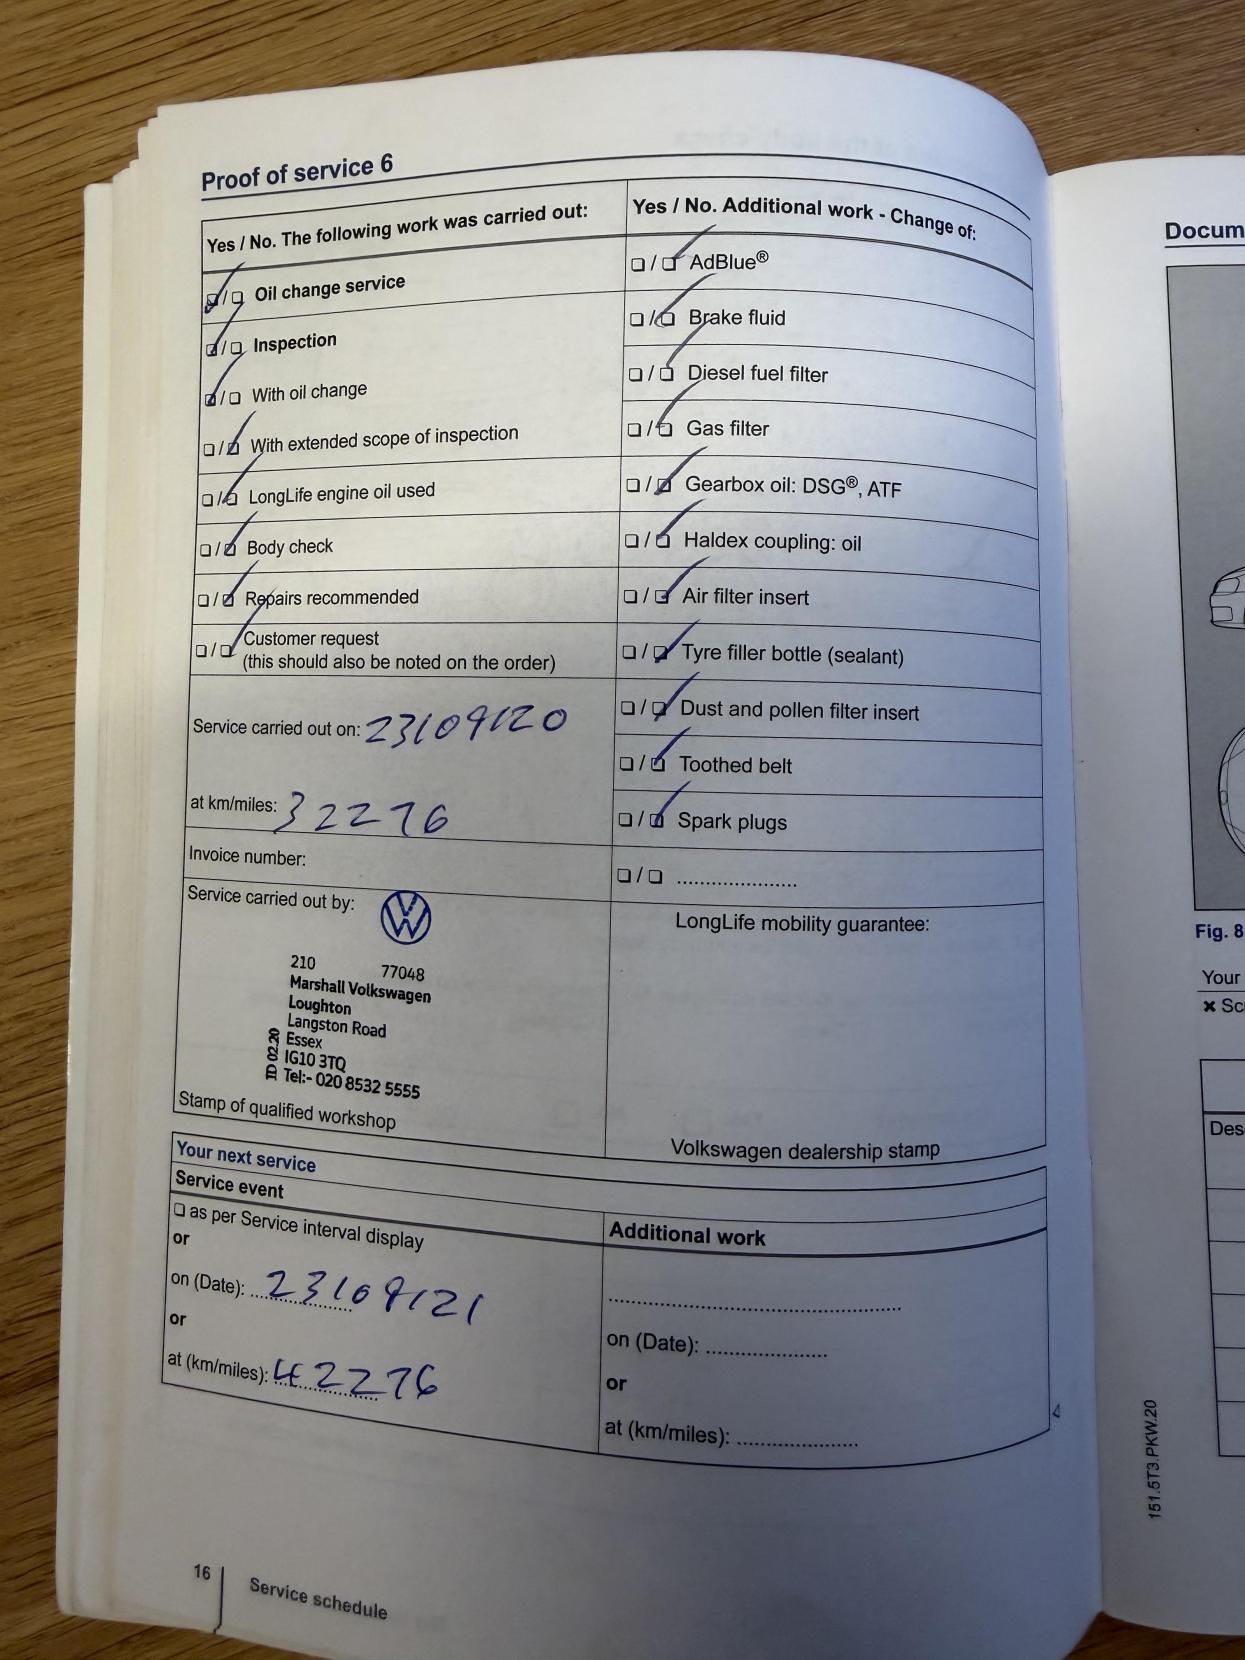 Proof of service 6
Yes / No. The following work was carried out:
❏ / ❏ Oil change service
❏ / ❏ Inspection
❏ / ❏ With oil change
❏ / ❏ With extended scope of inspection
❏ / ❏ LongLife engine oil used
❏ / ❏ Body check
❏ / ❏ Repairs recommended
❏ / ❏ Customer request
(this should also be noted on the order)
Service carried out on: 23/09/20
at km/miles: 32276
Invoice number:
Service carried out by:
210 77048
Marshall Volkswagen
Loughton
Langston Road
Essex
IG10 3TQ
Tel:- 020 8532 5555
TD 02.20
Stamp of qualified workshop
Yes / No. Additional work - Change of:
❏ / ❏ AdBlue®
❏ / ❏ Brake fluid
❏ / ❏ Diesel fuel filter
❏ / ❏ Gas filter
❏ / ❏ Gearbox oil: DSG®, ATF
❏ / ❏ Haldex coupling: oil
❏ / ❏ Air filter insert
❏ / ❏ Tyre filler bottle (sealant)
❏ / ❏ Dust and pollen filter insert
❏ / ❏ Toothed belt
❏ / ❏ Spark plugs
❏ / ❏ .....................
LongLife mobility guarantee:
Volkswagen dealership stamp
Your next service
Service event
❏ as per Service interval display
or
on (Date): 23/09/21
or
at (km/miles): 42276
Additional work
..................................................
on (Date): .....................
or
at (km/miles): .....................
16
Service schedule
Docum
Fig. 8
Your
✖ Sc
Des
151.5T3.PKW.20